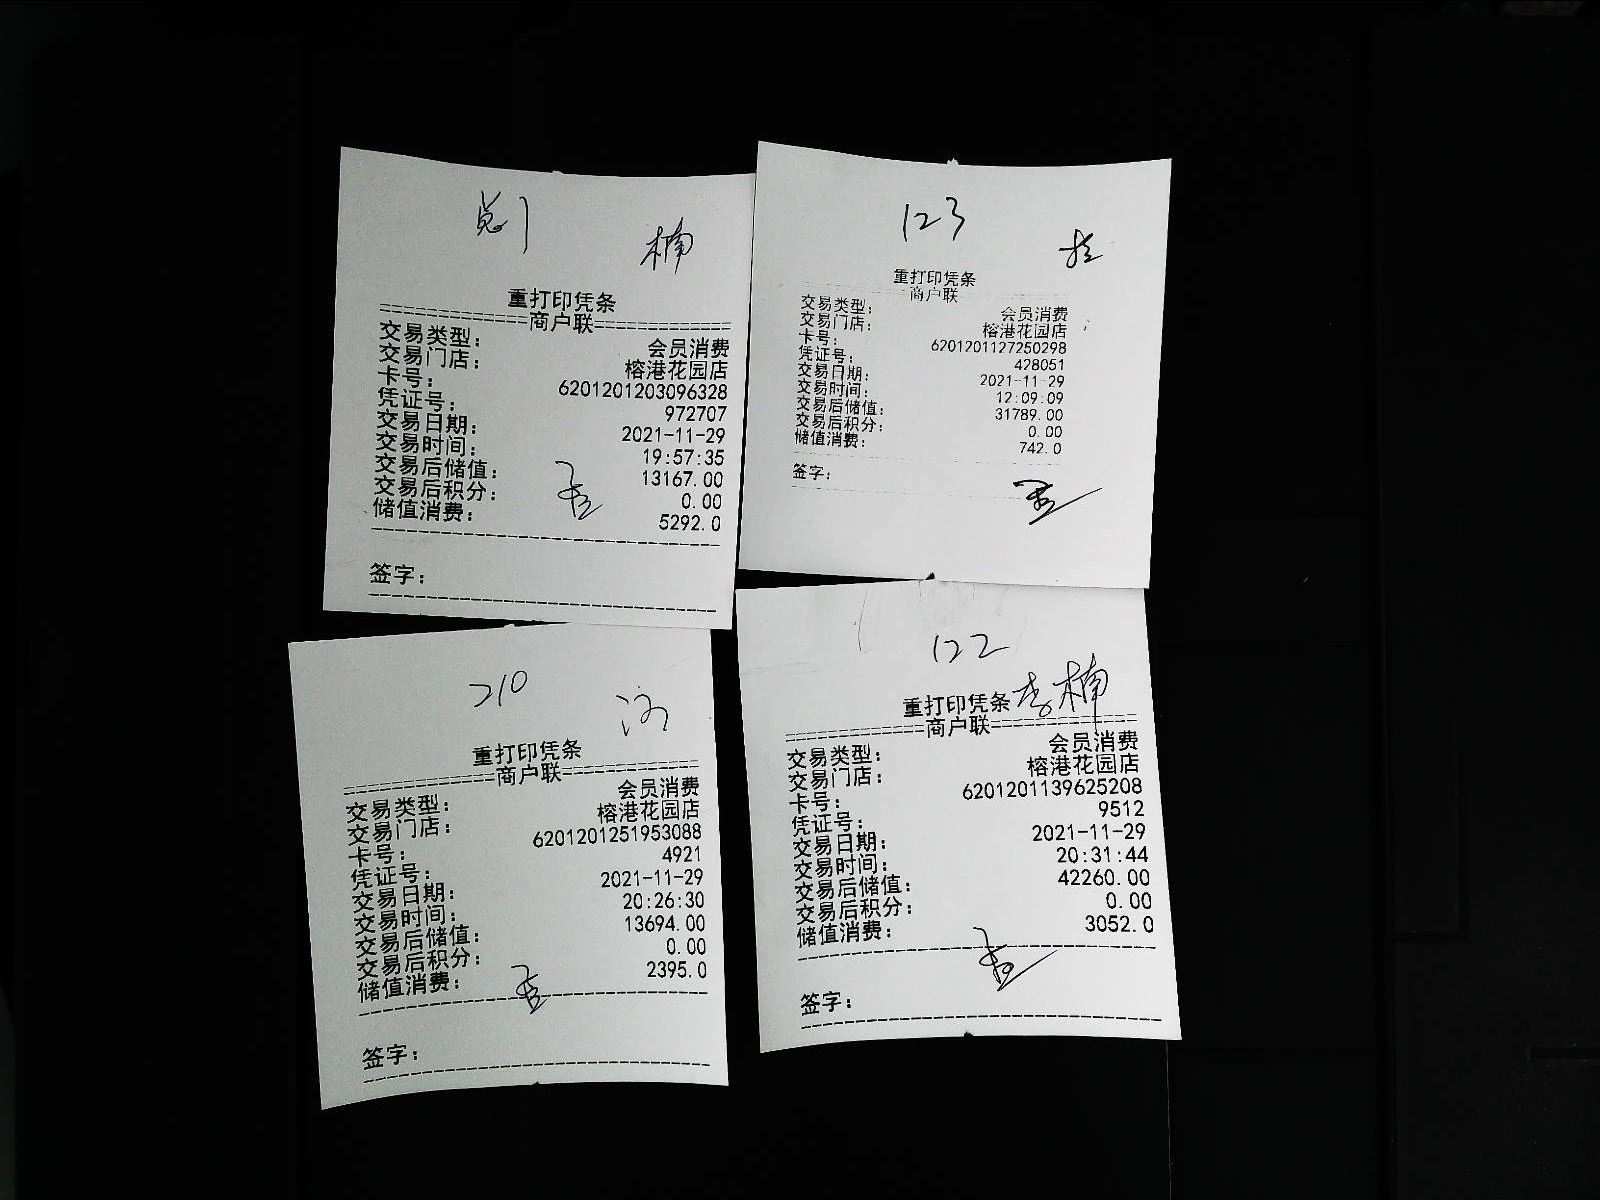 总1
楠
重打印凭条
商户联
交易类型： 会员消费
交易门店： 榕港花园店
卡号： 6201201203096328
凭证号： 972707
交易日期： 2021-11-29
交易时间： 19:57:35
交易后储值： 13167.00
交易后积分： 0.00
储值消费： 5292.0
签字：
123
重打印凭条
商户联
交易类型： 会员消费
交易门店： 榕港花园店
卡号： 6201201127250298
凭证号： 428051
交易日期： 2021-11-29
交易时间： 12:09:09
交易后储值： 31789.00
交易后积分： 0.00
储值消费： 742.0
签字：
210
重打印凭条
商户联
交易类型： 会员消费
交易门店： 榕港花园店
卡号： 6201201251953088
凭证号： 4921
交易日期： 2021-11-29
交易时间： 20:26:30
交易后储值： 13694.00
交易后积分： 0.00
储值消费： 2395.0
签字：
122
李楠
重打印凭条
商户联
交易类型： 会员消费
交易门店： 榕港花园店
卡号： 6201201139625208
凭证号： 9512
交易日期： 2021-11-29
交易时间： 20:31:44
交易后储值： 42260.00
交易后积分： 0.00
储值消费： 3052.0
签字：